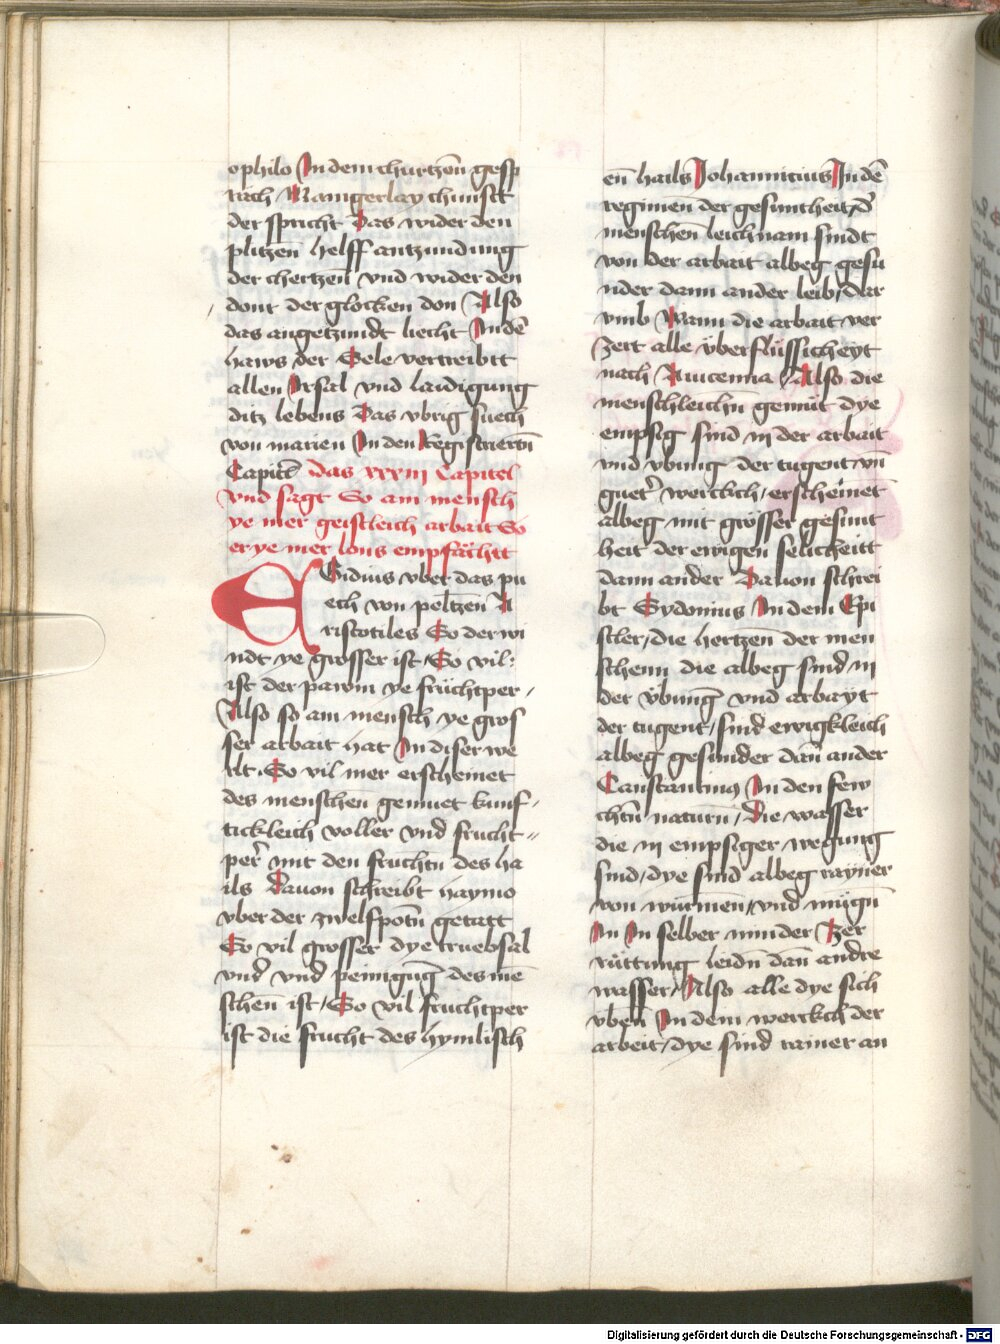 ophilo In dem churtzen gesp
räch Mamgerlay chunstt
der spricht Das wider den
plitzen helff antzundung
der chertzen vnd wider den
donr der glocken don Also
das angetzundt liecht In dē
haws der Sele vertreibtt
allen Irsal vnd laidigung
ditz lebens Das vbrig suech
von marien In den Registriertn̄
Capitel das xxxiii Capitel
vnd sagt So am mensch
ye mer geistleich arbait So
er ye mer lons empfächtt
Egidius vber das pu
ech von peltzen A
ristotiles So der wi
ndt ye grosser ist So vil
ist der pawm ye früchtper
Also so am mensch ye gros
ser arbait hat In diser we
lt So vil mer erscheinet
des menschen gemuet kunf
tickleich voller vnd frucht
per mit den fruchtn des ha
ils Dauon schreibt haymo
vber der zwelfpotn̄ getatt
So vil grosser dye truebsal
vnd vnd peinigūg des mē
schen ist So vil fruchtper
ist die frucht des hymlisch
en hails Johannicius In dē
regimen der gesuntheit d'
menschen leichnam sindt
von der arbait albeg gesu
nder dann ander leib dar
vmb Wann die arbait ver
zert alle überflüssicheyt
nach Auicenna Also die
menschleichn̄ gemüt dye
empsig sind in der arbait
vnd vbung der tugent vn̄
guet' werckich erscheinet
albeg mit grösser gesunt
heit der ewigen selickeitt
dann ander Dauon schrei
bt Sydonius In dem Epi
stler die hertzen der men
schenn die albeg sind in
der übung vnd arbayt
der tugent sind ewigkleich
albeg gesunder dan̄ ander
Constantinus In den sew
chtn̄ naturn Die wasser
die in empsiger wegung
sind dye sind albeg rayner
von würmen vnd mügn̄
In In selber minder Zer
rüttung leidn̄ dan̄ andre
wasser Also alle dye sich
vben In dem werckch der
arbeit dye sind rainer an
Digitalisierung gefördert durch die Deutsche Forschungsgemeinschaft - DFG